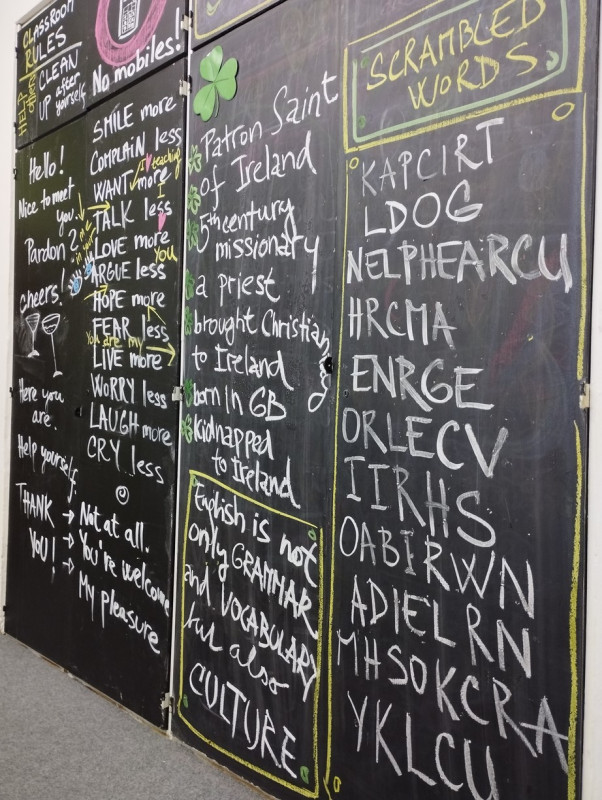 CLASSROOM
RULES
HELP
others
CLEAN
UP after
yourself
No mobiles!
Hello!
Nice to meet
you.
Pardon?
cheers!
Here you
are.
Help yourself.
THANK
YOU!
→ Not at all.
→ You're welcome
→ My pleasure
SMILE more
COMPLAIN less
WANT more
TALK less
LOVE more
ARGUE less
HOPE more
FEAR less
LIVE more
WORRY less
LAUGH more
CRY less
I ♥ teaching
you
You are my
Patron Saint
of Ireland
5th century
missionary
a priest
brought Christianity
to Ireland
born in GB
kidnapped
to Ireland
English is not
only GRAMMAR
and VOCABULARY
but also
CULTURE
SCRAMBLED
WORDS
KAPCIRT
LDOG
NELPHEARCU
HRCMA
ENRGE
ORLECV
IIRHS
OABIRWN
ADIELRN
MHSOKCRA
YKLCU